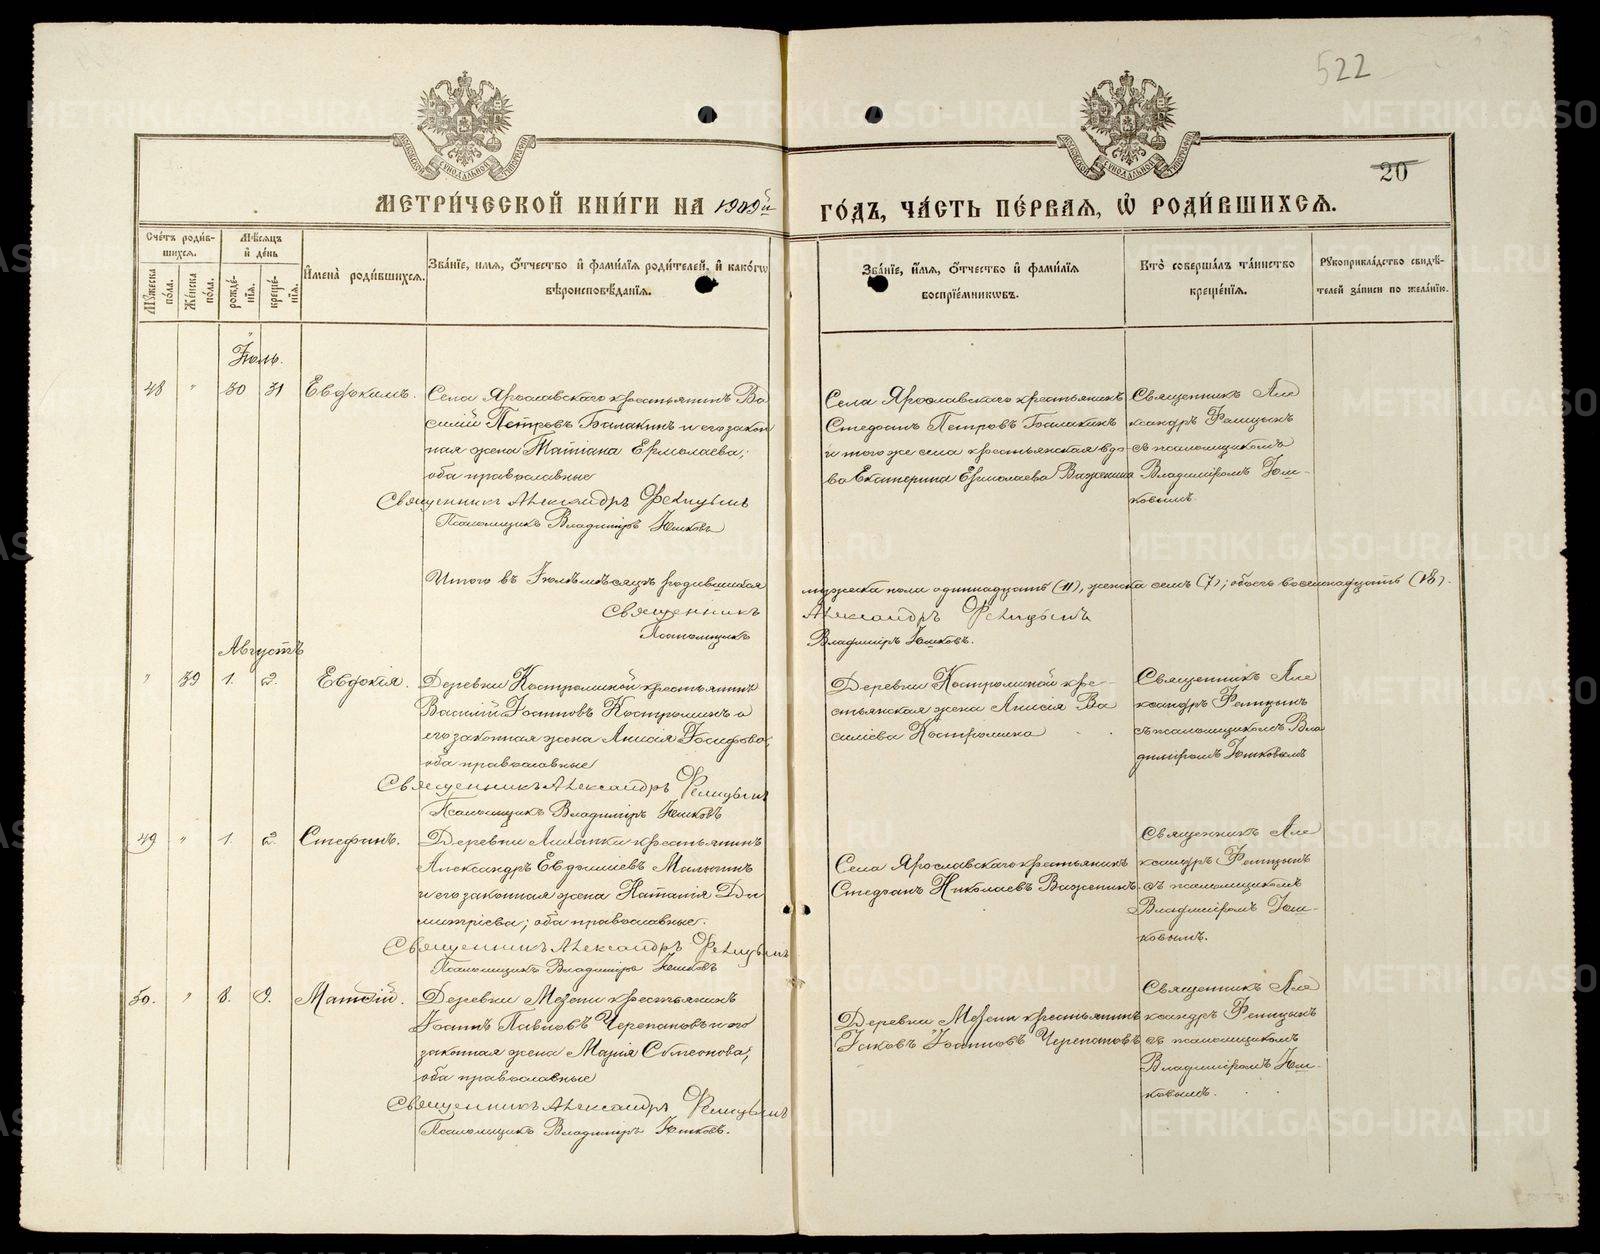 522
20
МЕТРИ́ЧЕСКОЙ КНИ́ГИ НА 1909й ГО́ДЪ, ЧА́СТЬ ПЕ́РВАЯ, Ѿ РОДИ́ВШИХСЯ.
Сче́тъ роди́в-
шихся.
Мѣ́сяцъ
и де́нь
Му́жеска по́ла.
Же́нска по́ла.
рожде́-
нія.
креще́-
нія.
Имена̀ роди́вшихся.
Зва́ніе, имя, о́тчество и фами́лія роди́телей, и како́гѡ
вѣроисповѣ́данія.
Зва́ніе, и́мя, о́тчество и фами́лія
воспріе́мникѡвъ.
Кто̀ соверша́лъ та́инство
креще́нія.
Рукоприкла́дство свидѣ́-
телей за́писи по жела́нію.
Іюль.
48 " 30 31 Евфимъ.
Села Ярославскаго крестьянинъ Ва
силій Петровъ Балакинъ и его закон
ная жена Татіана Ермолаева;
оба православные
Священникъ Александръ Фелицынъ
Псаломщикъ Владиміръ Юшковъ
Села Ярославскаго крестьянинъ
Стефанъ Петровъ Балакинъ
и того же села крестьянская вдо-
ва Екатерина Ермолаева Важенина
Священникъ Але
ксандръ Фелицынъ
съ псаломщикомъ
Владиміромъ Юш-
ковымъ.
Итого въ Іюлѣ мѣсяцѣ родившихся мужеска пола одиннадцать (11), женска семь (7); обоего восемнадцать (18).
Священникъ Александръ Фелицынъ
Псаломщикъ Владиміръ Юшковъ.
Августъ
" 39 1. 2. Евдокія.
Деревни Костроминой крестьянинъ
Василій Іоанновъ Костроминъ и
его законная жена Анисія Іосифова;
оба православные
Священникъ Александръ Фелицынъ
Псаломщикъ Владиміръ Юшковъ
Деревни Костроминой кре-
стьянская жена Анисія Ва
силіева Костромина
Священникъ Але
ксандръ Фелицынъ
съ псаломщикомъ Вла
диміромъ Юшковымъ
49 " 1. 2. Стефанъ.
Деревни крестьянинъ
Александръ Малютинъ
и его законная жена Наталія Ди
митріева; оба православные.
Священникъ Александръ Фелицынъ
Псаломщикъ Владиміръ Юшковъ
Села Ярославскаго крестьянинъ
Стефанъ Николаевъ Важенинъ.
Священникъ Але
ксандръ Фелицынъ
съ псаломщикомъ
Владиміромъ Юш-
ковымъ.
50. " 8. 9. Матѳій.
Деревни Мезени крестьянинъ
Іоаннъ Павловъ Черепановъ и его
законная жена Марія Симеонова;
оба православные
Священникъ Александръ Фелицынъ
Псаломщикъ Владиміръ Юшковъ.
Деревни Мезени крестьянинъ
Іаковъ Іоанновъ Черепановъ
Священникъ Але
ксандръ Фелицынъ
съ псаломщикомъ
Владиміромъ Юш-
ковымъ.
METRIKI.GASO-URAL.RU